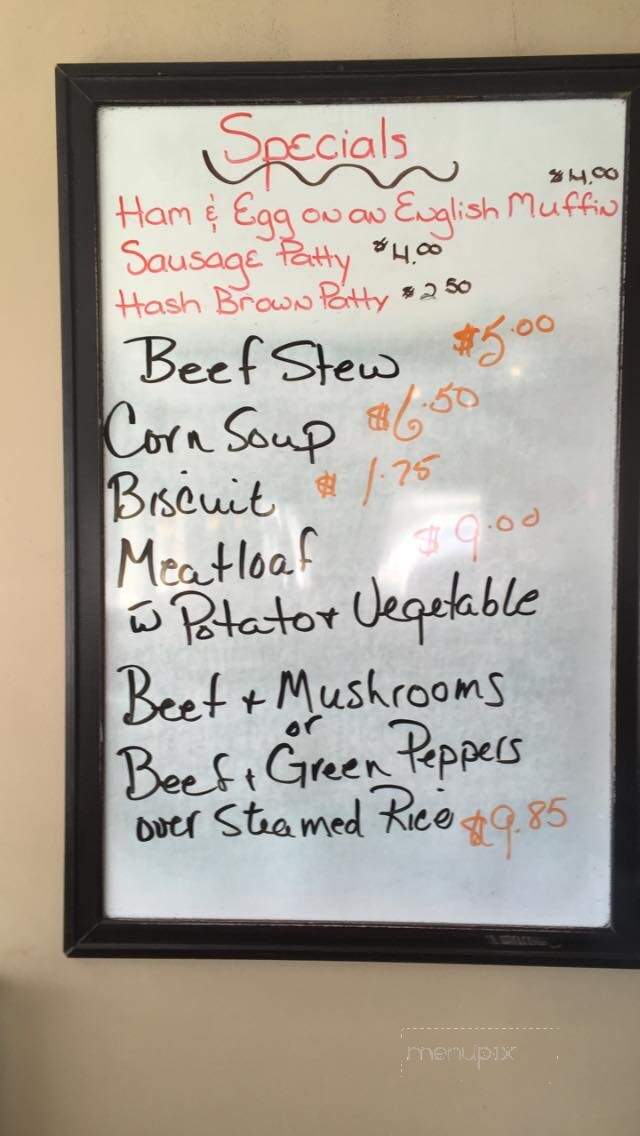 Specials
$4.00
Ham & Egg on an English Muffin
Sausage Patty $4.00
Hash Brown Patty $2.50
Beef Stew $5.00
Corn Soup $6.50
Biscuit $1.75
Meatloaf $9.00
w̄ Potato + Vegetable
Beef + Mushrooms
or
Beef + Green Peppers
over Steamed Rice $9.85
menupix